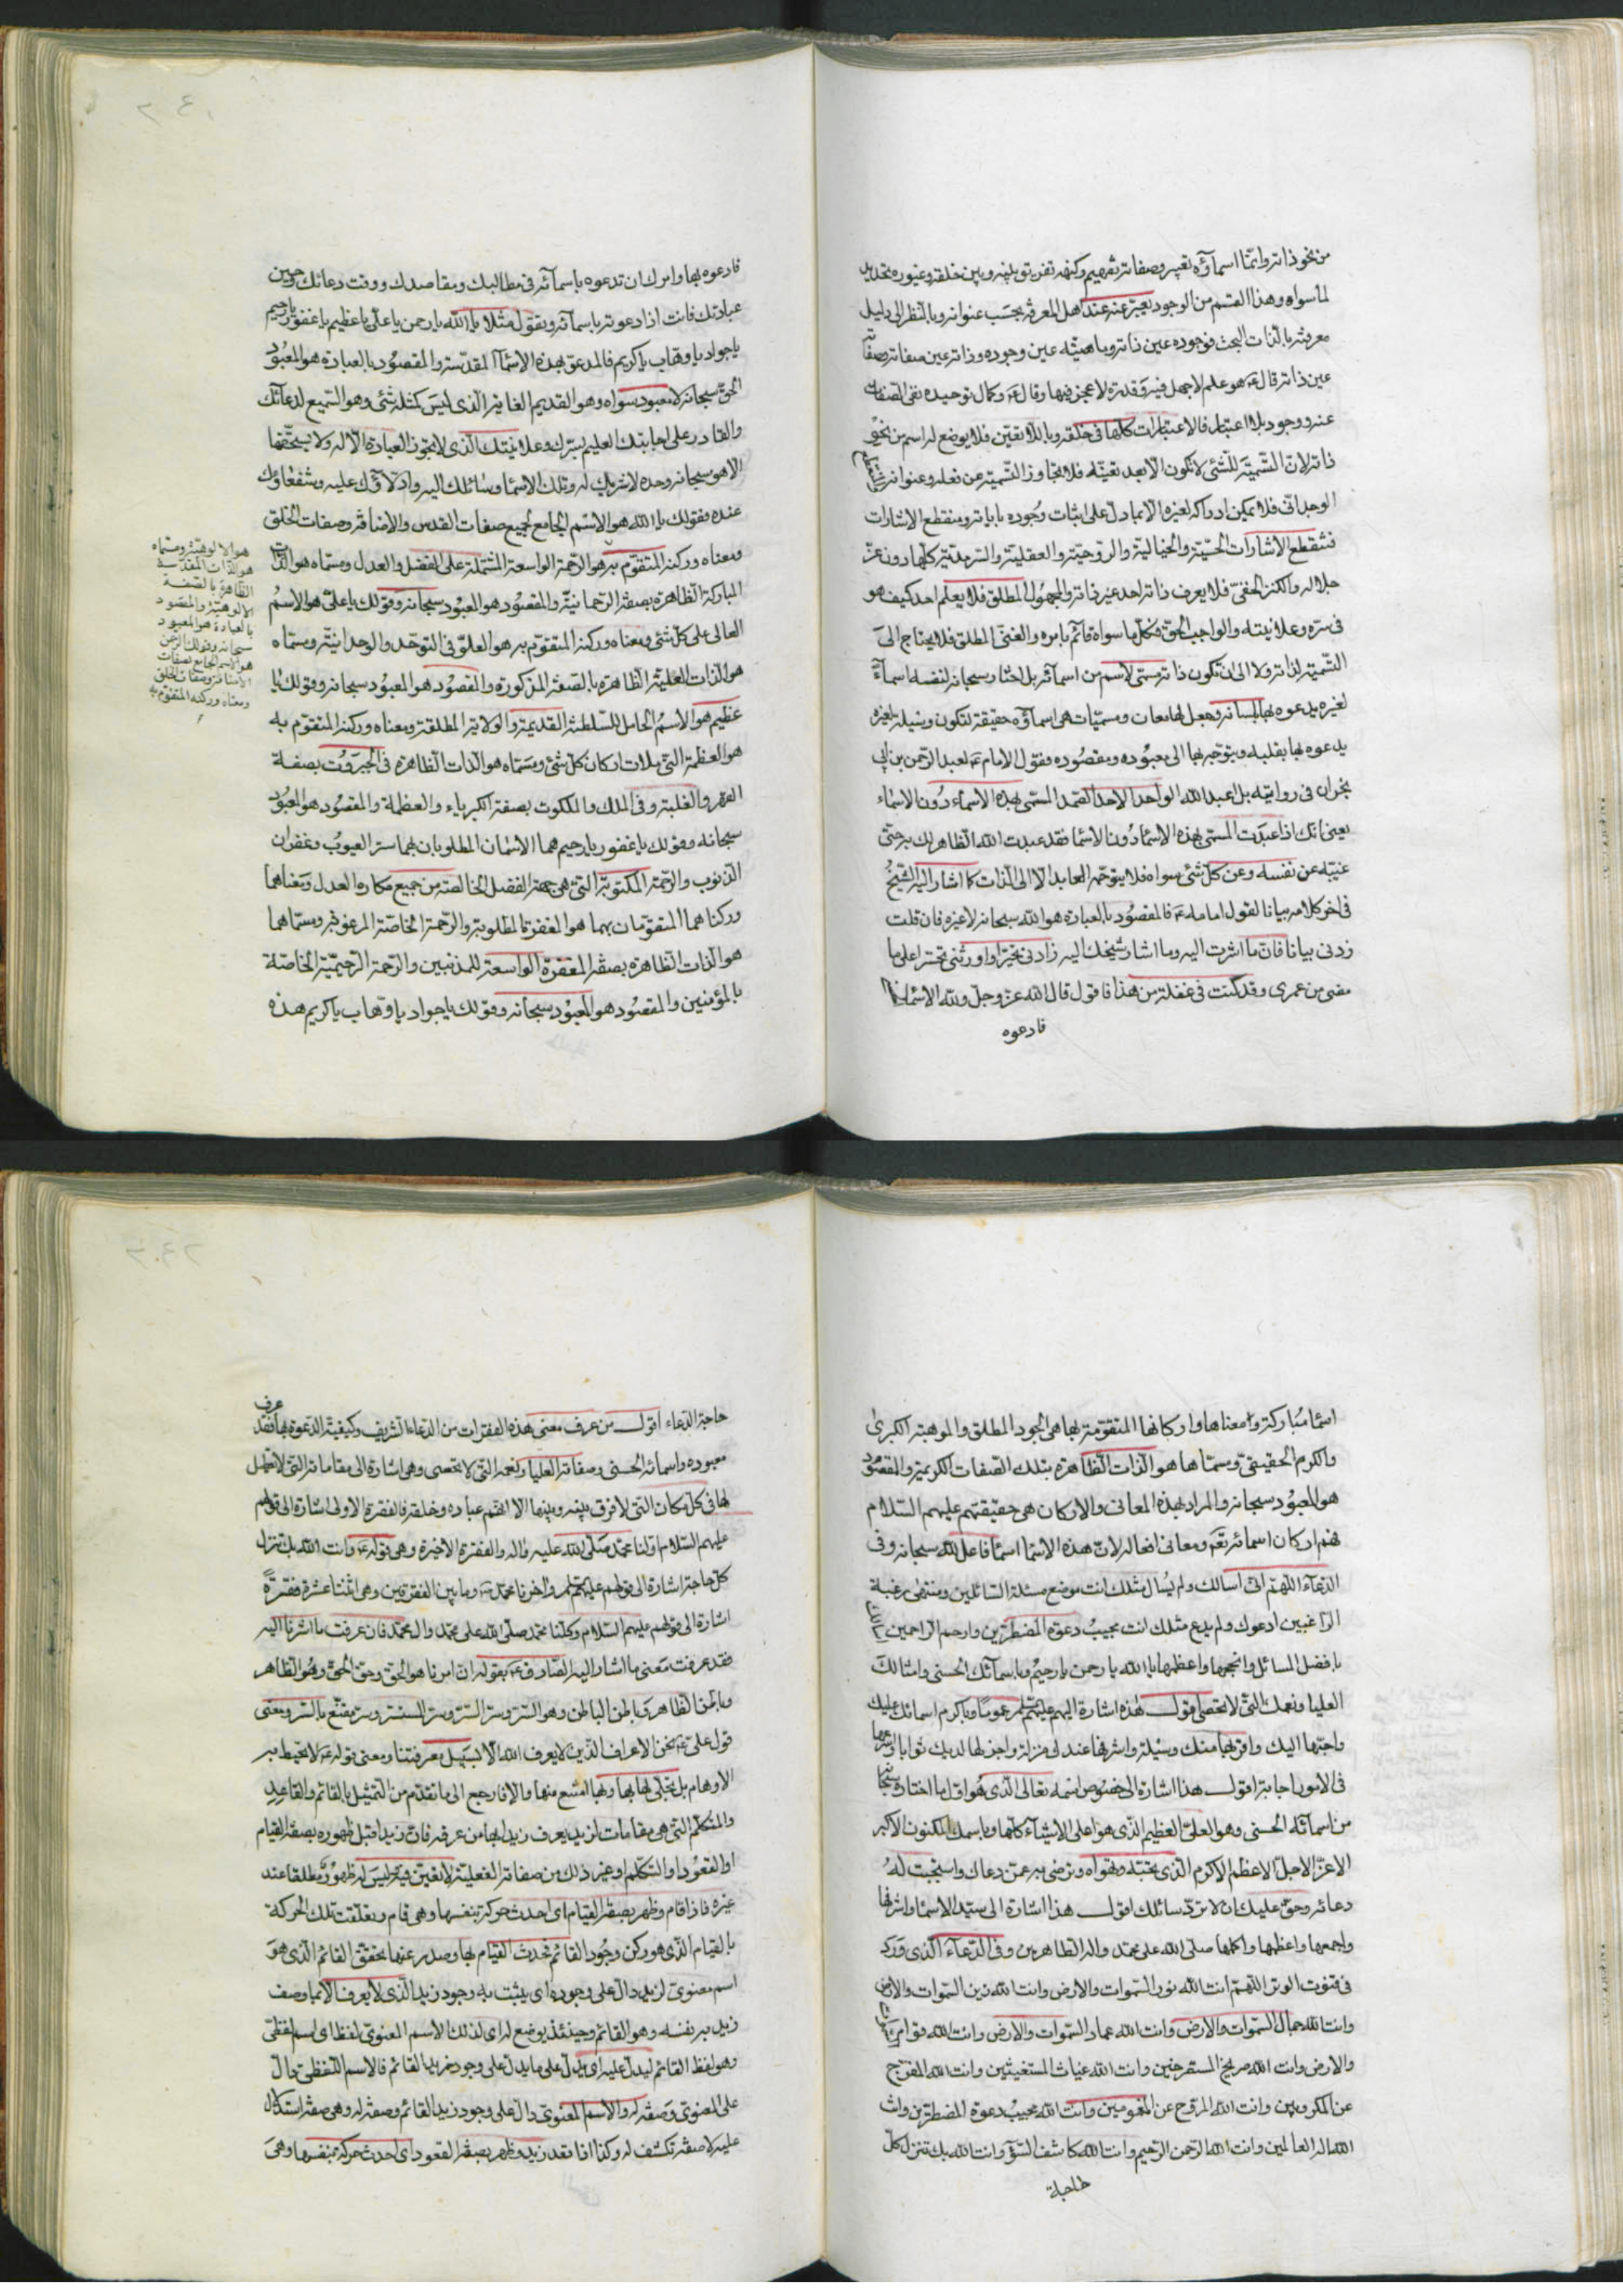 من نحو ذاته وانما اسماؤه تعبير وصفاته تفهيم وكنهه تفريق بينه وبين خلقه وغيوره تحديد
لما سواه وهذا القسم من الوجود يعبر عنه عند اهل المعرفة بحسب عنوانه وبالنظر الى دليل
معرفته بالذات البحت فوجوده عين ذاته وماهيته عين وجوده وذاته عين صفاته وصفاته
عين ذاته قال ع هو علم لا جهل فيه وقدرة لا عجز فيها وقال ع وكمال توحيده نفى الصفات
عنه ووجود بلا اعتبار فالاعتبارات كلها فى خلقه وباللا تعين فلا يوضع له اسم من نحو
ذاته لان التسمية للشئ لا تكون الا بعد تعينه فلا تجاوز التسمية عن فعله وعنوانه
الوجدانى فلا يمكن ادراكه لغيره الا بما دل على اثبات وجوده باياته ومنقطع الاشارات
فتنقطع الاشارات الحسية والخيالية والروحية والعقلية والسرمدية كلها دون عز
جلاله والكنز المخفى فلا يعرف ذاته احد غير ذاته والمجهول المطلق فلا يعلم احد كيف هو
فى سره وعلانيته والواجب الحق فكل ما سواه قائم بامره والغنى المطلق فلا يحتاج الى
التسمية لذاته ولا الى ان تكون ذاته مسمى لاسم من اسمائه بل اختار سبحانه لنفسه اسماء
لغيره يدعوه بها بلسانه وجعل لها معان ومسميات هى اسماؤه حقيقة لتكون وسيلة لغيره
يدعوه بها بقلبه ويتوجه بها الى معبوده ومقصوده فقول الامام ع لعبد الرحمن بن ابى
نجران فى روايته بل اعبد الله الواحد الاحد الصمد المسمى بهذه الاسماء دون الاسماء
يعنى انك اذا عبدت المسمى بهذه الاسماء دون الاسماء فقد عبدت الله الظاهر لك به حتى
غيبه عن نفسه وعن كل شئ سواه فلا يتوجه العابد الا الى الذات كما اشار اليه الشيخ
فى اخر كلامه بيانا لقول امامه ع فالمقصود بالعبادة هو الله سبحانه لا غيره فان قلت
زدنى بيانا فان ما اشرت اليه وما اشار شيخك اليه زادنى تحيرا واورثنى تحسرا على ما
مضى من عمرى وقد كنت فى غفلة من هذا فاقول قال الله عز وجل ولله الاسماء الحسنى
فادعوه
فادعوه بها وامرك ان تدعوه باسمائه فى مطالبك ومقاصدك ووقت دعائك وحين
عبادتك فانت اذا دعوته باسمائه وتقول مثلا يا الله يا رحمن يا على يا عظيم يا غفور يا رحيم
يا جواد يا وهاب يا كريم فالمدعو بهذه الاسماء المقدسة والمقصود بالعبادة هو المعبود
الحق سبحانه لا معبود سواه وهو القديم الغاية الذى ليس كمثله شئ وهو السميع لدعائك
والقادر على اجابتك العليم بسرك وعلانيتك الذى لا تجوز العبادة الا له ولا يستحقها
الا هو سبحانه وحده لا شريك له وتلك الاسماء وسائلك اليه وادلاؤك عليه وشفعاؤك
عنده فقولك يا الله هو الاسم الجامع لجميع صفات القدس والاضافة وصفات الخلق
ومعناه وركنه المتقوم به هو الرحمة الواسعة المشتملة على الفضل والعدل ومسماه هو الذات
المباركة الظاهرة بصفة الرحمانية والمقصود هو المعبود سبحانه وقولك يا على هو الاسم
العالى على كل شئ ومعناه وركنه المتقوم به هو العلو فى التوحد والوحدانية ومسماه
هو الذات العلية الظاهرة بالصفة المذكورة والمقصود هو المعبود سبحانه وقولك يا
عظيم هو الاسم الحامل للسلطنة القديمة والولاية المطلقة ومعناه وركنه المتقوم به
هو العظمة التى ملات اركان كل شئ ومسماه هو الذات الظاهرة فى الجبروت بصفة
القهر والغلبة وفى الملك والملكوت بصفة الكبرياء والعظمة والمقصود هو المعبود
سبحانه وقولك يا غفور يا رحيم هما الاسمان المطلوبان بهما ستر العيوب وغفران
الذنوب والرحمة المكتوبة التى هى جهة الفضل الخالصة من جميع مكاره العدل ومعناهما
وركناهما المتقومان بهما هو المغفرة المطلوبة والرحمة الخاصة المرغوفة ومسماهما
هو الذات الظاهرة بصفة المغفرة الواسعة للمذنبين والرحمة الرحيمية الخاصة
بالمؤمنين والمقصود هو المعبود سبحانه وقولك يا جواد يا وهاب يا كريم هذه
هو الالوهية ومسماه
هو الذات المقدسة
الظاهرة بالصفة
الالوهية والمقصود
بالعبادة هو المعبود
سبحانه وقولك الرحمن
هو الاسم الجامع لصفات
الاضافة وصفات الخلق
ومعناه وركنه المتقوم به
اسماء مباركة ومعناها واركانها المتقومة بها هى الجود المطلق والموهبة الكبرى
والكرم الحقيقى ومسماها هو الذات الظاهرة بتلك الصفات الكريمة والمقصود
هو المعبود سبحانه والمراد بهذه المعانى والاركان هى حقيقتهم عليهم السلام
فهم اركان اسمائه تع ومعانى افعاله لان هذه الاسماء اسماء افاعل الله سبحانه وفى
الدعاء اللهم انى اسالك ولم يسال مثلك انت موضع مسئلة السائلين ومنتهى رغبة
الراغبين ادعوك ولم يدع مثلك انت مجيب دعوة المضطرين وارحم الراحمين
بافضل المسائل وانجحها واعظمها يا الله يا رحمن يا رحيم وباسمائك الحسنى وامثالك
العليا ونعمك التى لا تحصى اقول هذه اشارة اليهم عليهم السلام عموما وباكرم اسمائك عليك
واحبها اليك واقربها منك وسيلة واشرفها عندك منزلة واجزلها لديك ثوابا واسرعها
فى الامور اجابة اقول هذا اشارة الى خصوص اسمه تعالى الذى هو اول ما اختاره سبحانه
من اسمائه الحسنى وهو العلى العظيم الذى هو اعلى الاشياء كلها وباسمك المكنون الاكبر
الاعز الاجل الاعظم الاكرم الذى تحبه وتهواه وترضى به عمن دعاك واستجبت له
دعائه وحق عليك ان لا ترد سائلك اقول هذا اشارة الى سيد الاسماء واشرفها
واجمعها واعظمها واكملها صلى الله على محمد واله الطاهرين وفى الدعاء الذى ورد
فى قنوت الوتر اللهم انت الله نور السموات والارض وانت الله زين السموات والارض
وانت الله جمال السموات والارض وانت الله عماد السموات والارض وانت الله قوام السموات
والارض وانت الله صريخ المستصرخين وانت الله غياث المستغيثين وانت الله المفرج
عن المكروبين وانت الله المروح عن المغمومين وانت الله مجيب دعوة المضطرين وانت
الله اله العالمين وانت الله الرحمن الرحيم وانت الله كاشف السوء وانت الله بك تنزل كل
حاجة
حاجة الدعاء اقول من عرف معنى هذه الفقرات من الدعاء الشريف وكيفية الدعوة بها فقد عرف
معبوده واسمائه الحسنى وصفاته العليا ونعمه التى لا تحصى وهى اشارة الى مقاماته التى لا تعطيل
لها فى كل مكان التى لا فرق بينه وبينها الا انهم عباده وخلقه فالفقرة الاولى اشارة الى قولهم
عليهم السلام اولنا محمد صلى الله عليه واله والفقرة الاخيرة وهى قوله ع وانت الله بك تنزل
كل حاجة اشارة الى قولهم عليهم السلام واخرنا محمد ص وما بين الفقرتين وهى اثنتا عشرة فقرة
اشارة الى قولهم عليهم السلام وكلنا محمد صلى الله على محمد وال محمد فان عرفت ما اشرنا اليه
فقد عرفت معنى ما اشار اليه الصادق ع بقوله ان امرنا هو الحق وحق الحق وهو الظاهر
وباطن الظاهر وباطن الباطن وهو السر وسر السر وسر المستسر وسر مقنع بالسر ومعنى
قول على ع نحن الاعراف الذين لا يعرف الله الا بسبيل معرفتنا ومعنى قوله ع لا تحيط به
الاوهام بل تجلى لها بها وبها امتنع منها والا فارجع الى ما تقدم من التمثيل بالقائم والقاعد
والمتكلم التى هى مقامات لزيد يعرف زيد بها من عرفه فان زيدا قبل ظهوره بصفة القيام
او القعود او التكلم او غير ذلك من صفاته الفعلية لا تعين فيه وليس له ظهور مطلقا عند
غيره فاذا قام وظهر بصفة القيام اى احدث حركة بنفسها وهى قام وتعلقت تلك الحركة
بالقيام الذى هو ركن وجود القائم فحدث القيام بها وصدر عنها تحقق القائم الذى هو
اسم معنوى لزيد دال على وجوده اى يثبت به وجود زيد الذى لا يعرف الا بما وصف
زيد به نفسه وهو القائم وحينئذ يوضع له اى لذلك الاسم المعنوى لفظا اى اسم لفظى
وهو لفظ القائم ليدل عليه اى يدل على ما يدل على وجود زيد القائم فالاسم اللفظى دال
على المعنوى وصفة له والاسم المعنوى دال على وجود زيد القائم وصفة له وهى صفة استدلال
عليه لا صفة تكشف له وكذا اذا قعد زيد وظهر بصفة القعود اى احدث حركة بنفسها وهى